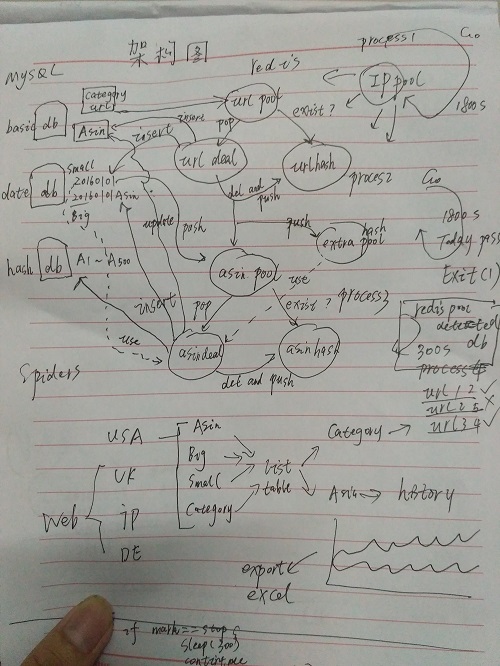 架构图
MySQL
redis
process1
Go
IP pool
1800s
category
url
url pool
exist?
basic db
Asin
insert
insert
pop
url deal
urlhash
process2
date db
small
20160101
20160101Asin
Big
det and
push
Go
1800s
Today pass
Exit(1)
update
push
push
hash
extra pool
hash db
A1~A500
asin pool
use
insert
pop
exist?
process3
use
asindeal
asinhash
det and push
redis pool
detected
300s db
process
url 1 2 ✓
url 2 3 ×
url 3 4 ✓
Spiders
USA
Asin
Big
Small
Category
list
table
Category
Asin
history
Web
UK
jp
DE
export
excel
if mark == stop {
sleep(300)
continue